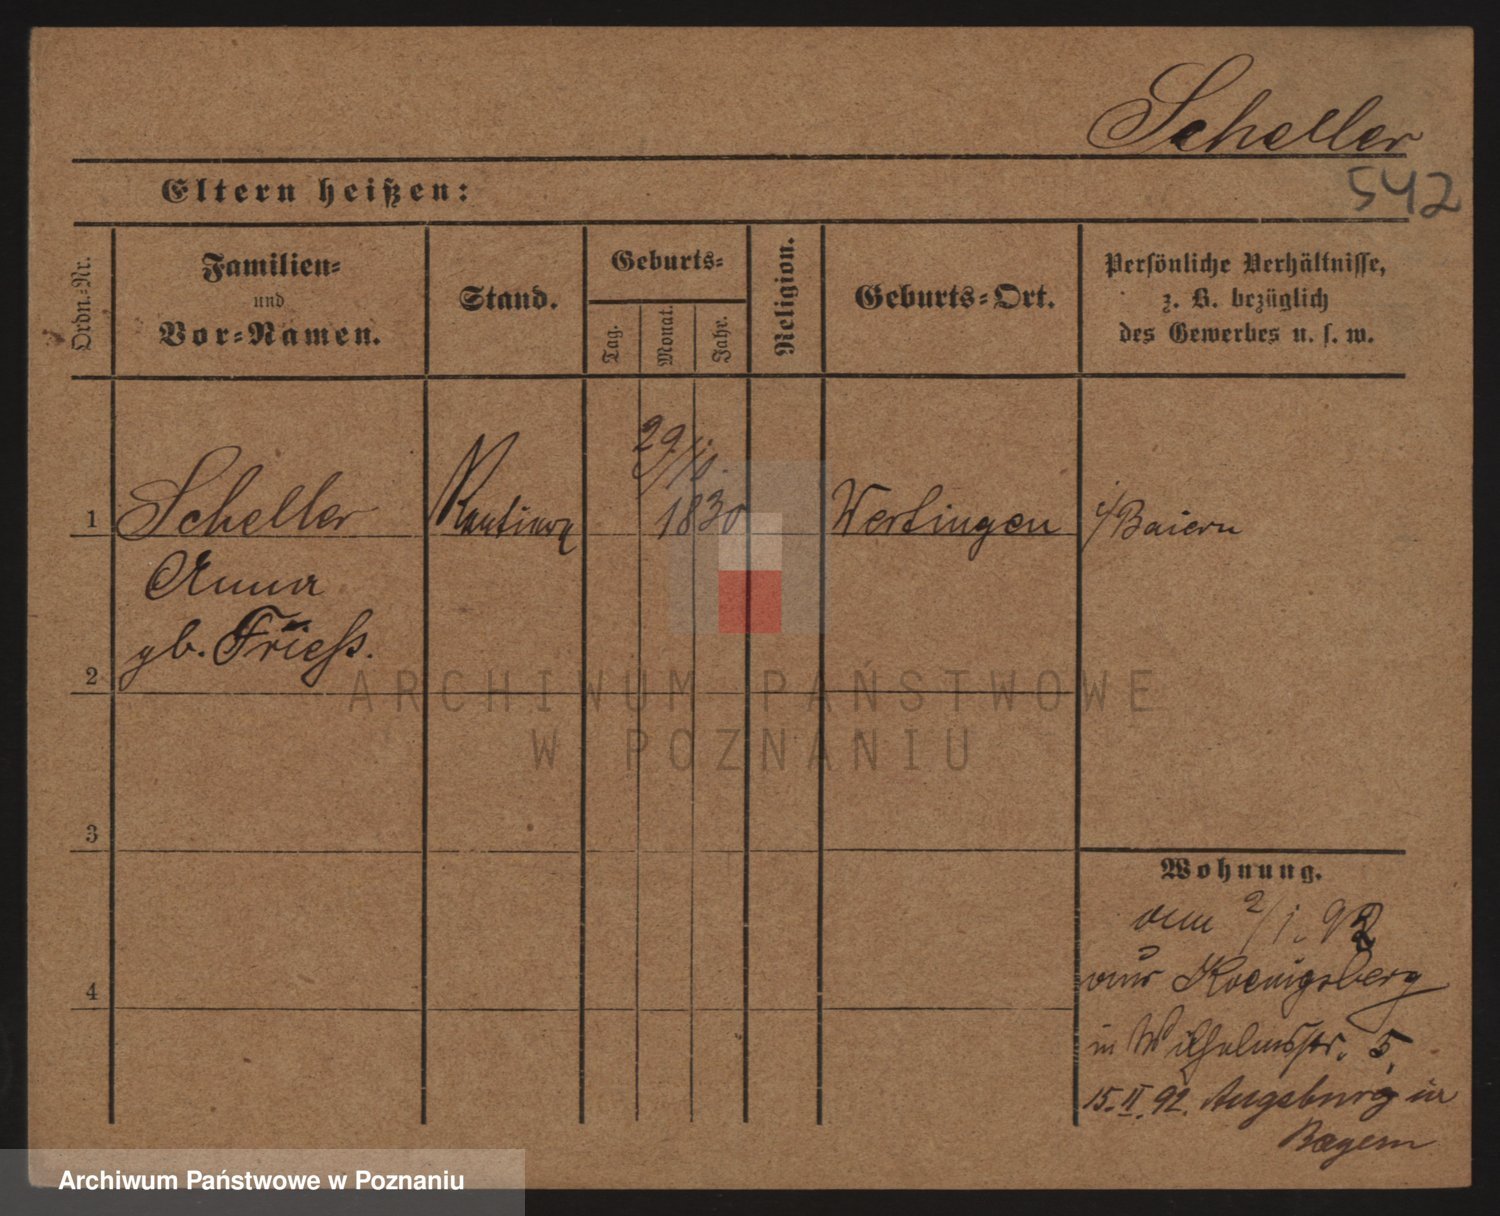 Scheller
542
Eltern heißen:
Ordn.-Nr.
Familien-
und
Vor-Namen.
Stand.
Geburts-
Tag.
Monat.
Jahr.
Religion.
Geburts-Ort.
Persönliche Verhältnisse,
z. B. bezüglich
des Gewerbes u. s. w.
29/11.
1 Scheller 1830 Wertingen i/Baiern
Anna
gb. Friess.
2
ARCHIWUM PAŃSTWOWE
W POZNANIU
3
Wohnung.
2/1. 92
4 aus Koenigsberg
in Wilhelmstr. 5.
15. II. 92. Augsburg in
Bayern
Archiwum Państwowe w Poznaniu